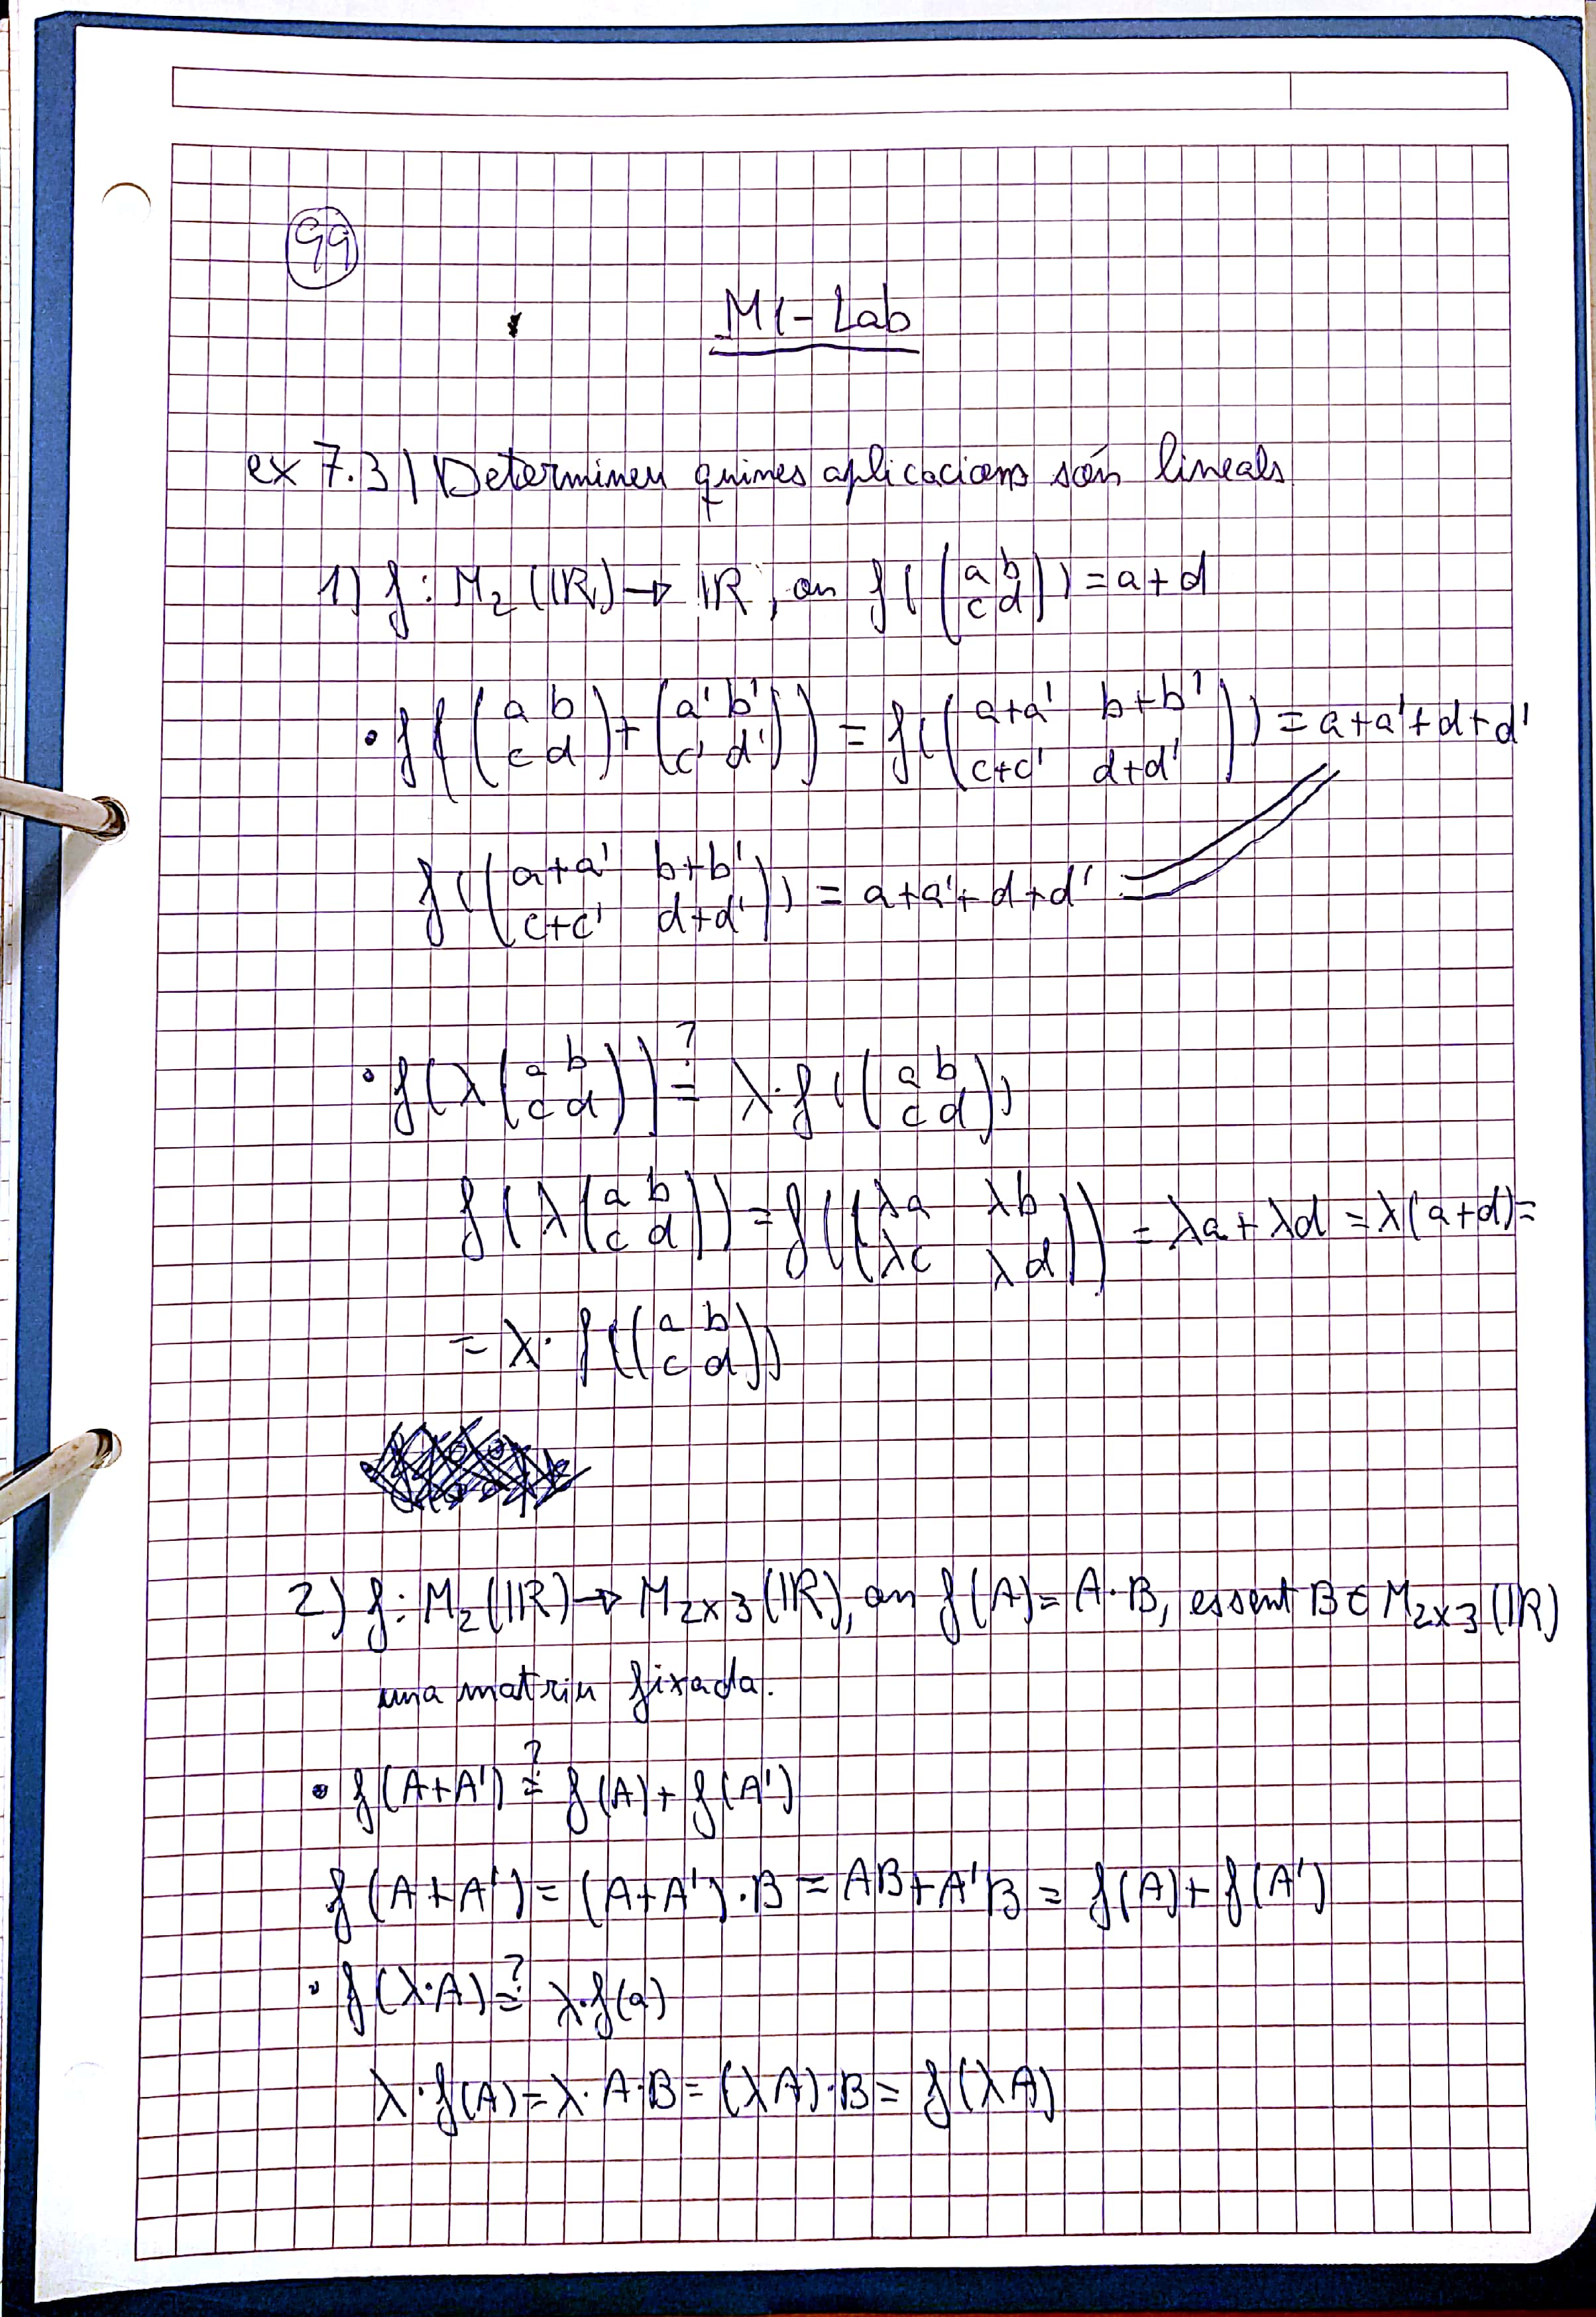 99
M1-Lab
ex 7.3) Determineu quines aplicacions són lineals.
1) f: M₂(ℝ) → ℝ, on f((a b
c d)) = a+d
• f((a b
c d) + (a' b'
c' d')) = f((a+a' b+b'
c+c' d+d')) = a+a'+d+d'
f((a+a' b+b'
c+c' d+d')) = a+a'+d+d' =
• f(λ(a b
c d)) ≟ λ·f((a b
c d))
f(λ(a b
c d)) = f((λa λb
λc λd)) = λa+λd = λ(a+d) =
= λ·f((a b
c d))
2) f: M₂(ℝ) → M₂ₓ₃(ℝ), on f(A) = A·B, essent B ∈ M₂ₓ₃(ℝ)
una matriu fixada.
• f(A+A') ≟ f(A)+f(A')
f(A+A') = (A+A')·B = AB+A'B = f(A)+f(A')
• f(λ·A) ≟ λ·f(a)
λ·f(A) = λ·A·B = (λA)·B = f(λA)